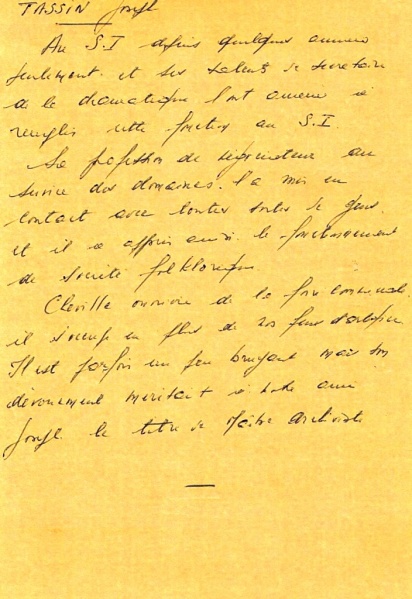 TASSIN Joseph
Au S.I depuis quelques années
seulement et ses talents de secrétaire
de la dramatique l'ont amené à
remplir cette fonction au S.I.
Sa profession de au
service des domaines. l'a mis en
contact avec toutes sortes de gens
et il a appris aussi le fonctionnement
de société folklorique.
Cheville ouvrière de la foire commerciale
il s'occupe en plus de nos feux d'artifice
Il est parfois un peu bruyant mais son
dévouement méritait à notre ami
Joseph le titre de Maître